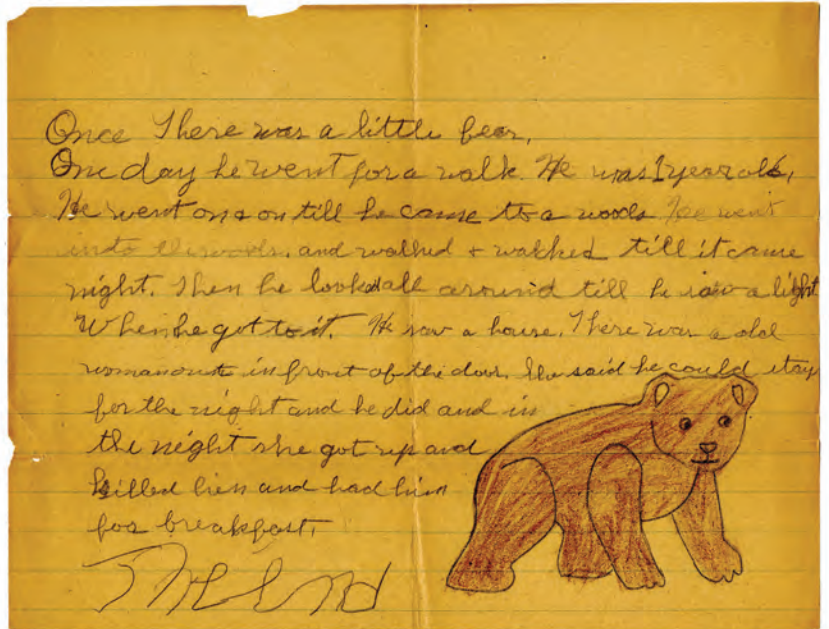 Once There was a little bear.
One day he went for a walk. He was 1 year old.
He went on & on till he came to a woods He went
into the woods. and walked & walked till it came
night. Then he lookd all around till he saw a light
When he got to it. He saw a house. There was a old
woman out in front of the door. She said he could stay
for the night and he did and in
the night she got up and
killed him and had him
for breakfast.
The End